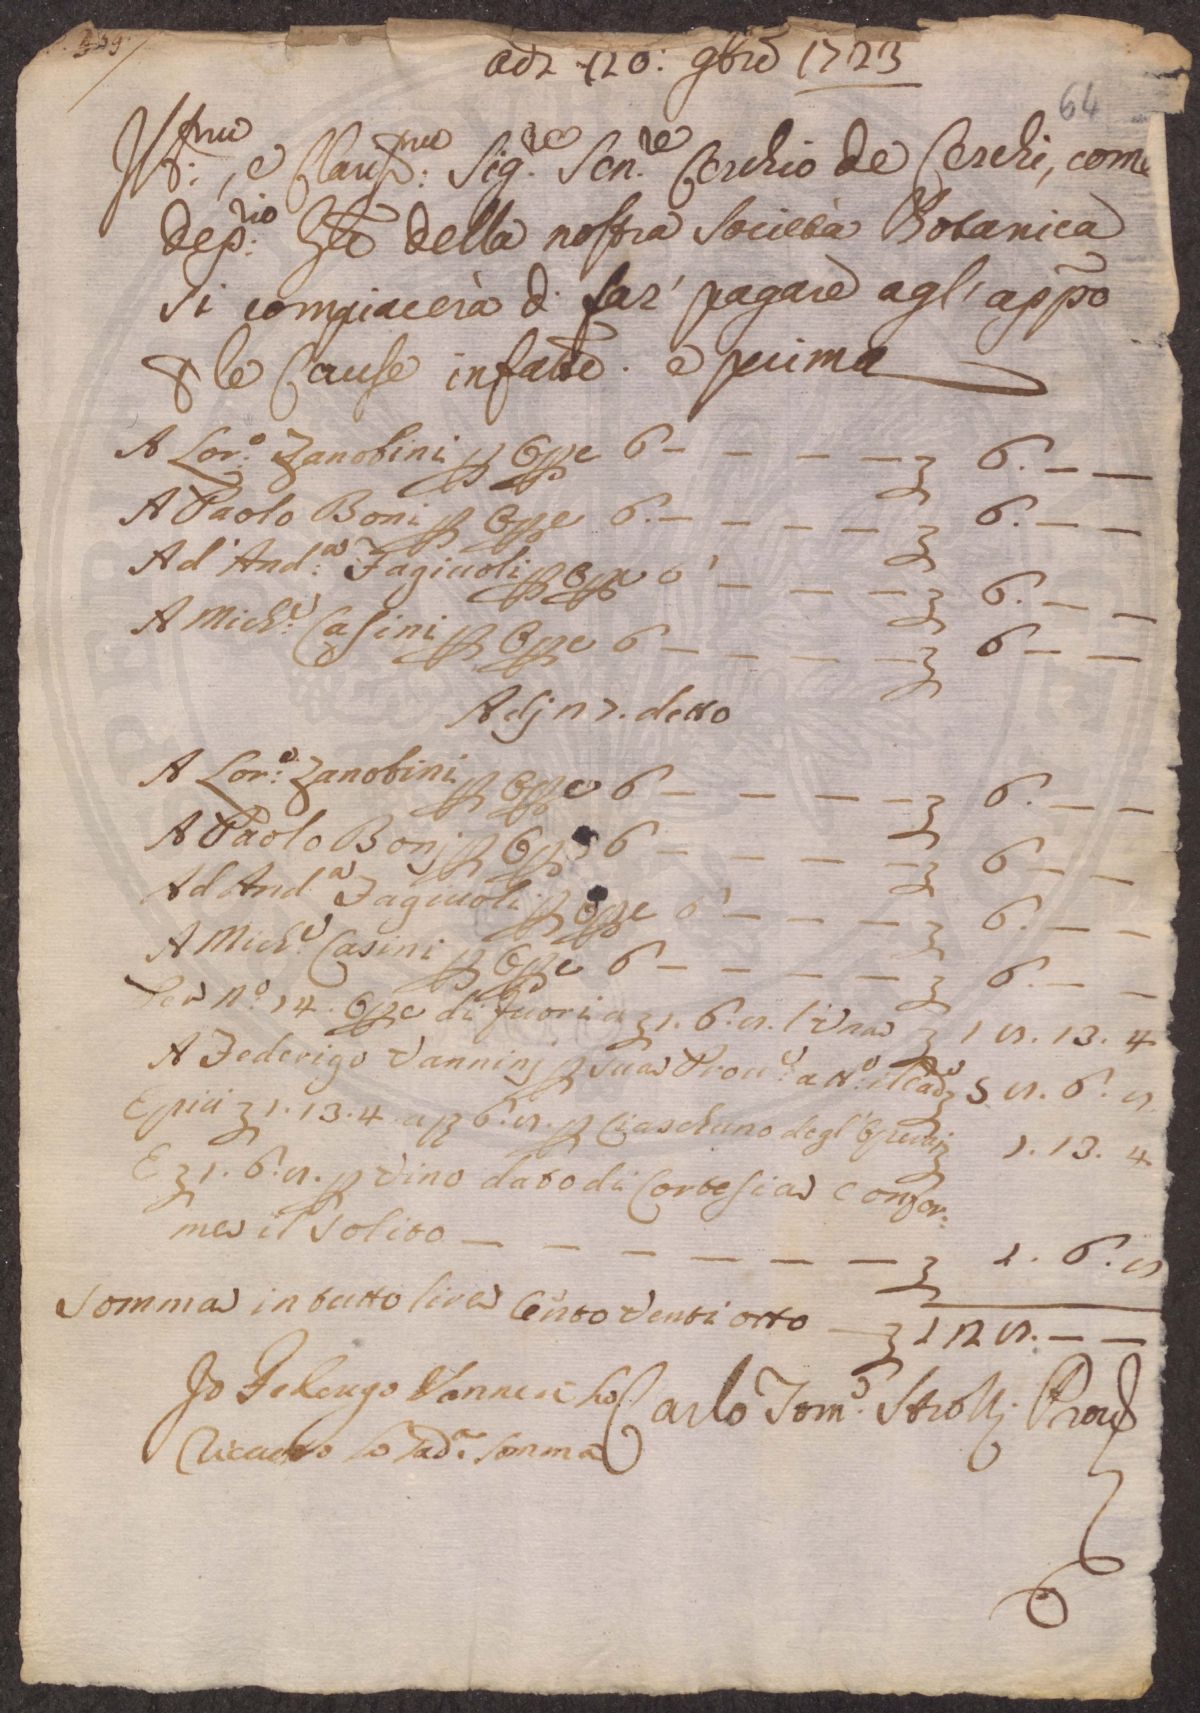 adi 20: 9bre 1723
64
Ill:mo, e Clariss:mo Sig:re Sen:re Cerchio de Cerchi, come
dep:rio della nostra Società Botanica
si compiacerà di far' pagare agl' appo
le Cause infatte. e prima
A Lor:o Zanobini p opre 6 — — — — £ 6. — —
A Paolo Boni p opre 6. — — — — £ 6. — —
Ad' And:a Fagiuoli p opre 6 — — — £ 6. — —
A Mich:e Casini p opre 6 — — — — £ 6 — —
Adj 27. detto
A Lor:o Zanobini p opre 6 — — — — £ 6. — —
A Paolo Bonj p opre 6 — — — — £ 6 — —
Ad And:a Fagiuoli p opre 6 — — — — £ 6. — —
A Mich:e Casini p opre 6 — — — — £ 6. — —
Per N:o 14. opre di fuori a £ 1. 6. 8. l'una £ 18. 13. 4
A Federigo Vanninj p sua Prou:e a N:o £ 58. 6. 8
E piu £ 1. 13. 4. a p 6. 8. p Ciascheuno degl' Operaj £ 1. 13. 4
E £ 1. 6. 8. p Vino dato di Cortesia Confor:
me il Solito — — — — — — — £ 1. 6. 8
Somma in tutto lire Cento Venti otto — £ 128. — —
Io Federigo Vannini ho Carlo Tom:o Strozzi Prou:e
riceuuto la Sad:a Somma